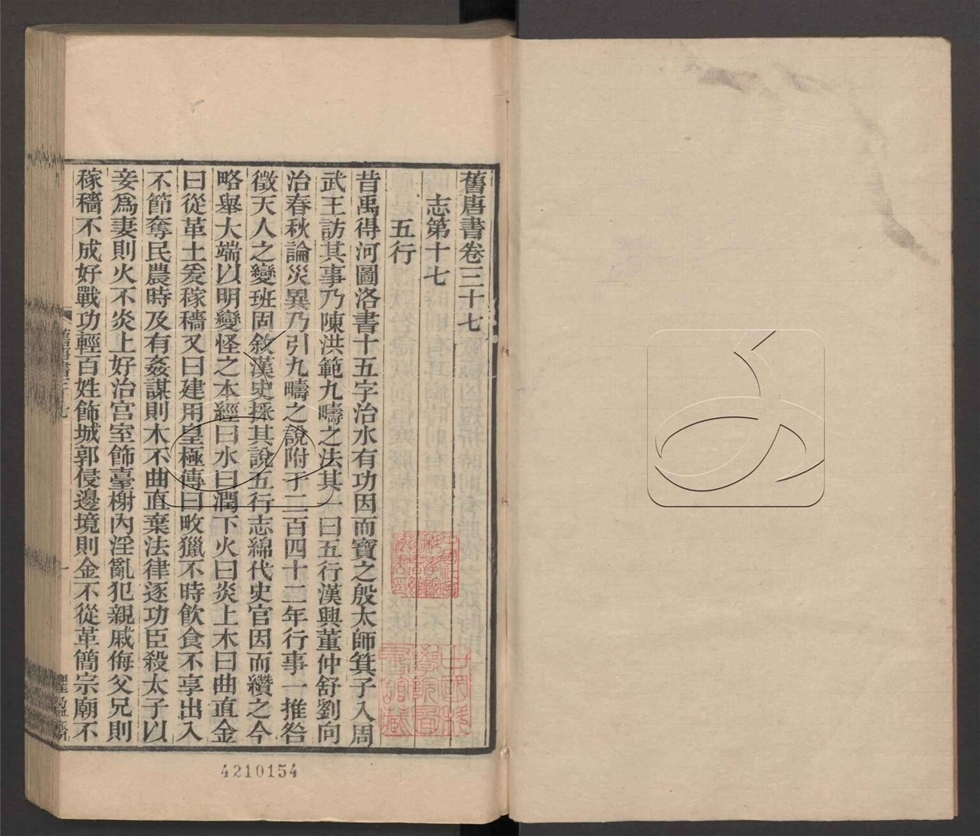 舊唐書卷三十七
志第十七
五行
昔禹得河圖洛書十五字治水有功因而寶之殷太師箕子入周
武王訪其事乃陳洪範九疇之法其一曰五行漢興董仲舒劉向
治春秋論災異乃引九疇之說附于二百四十二年行事一推咎
徵天人之變班固敘漢史採其說五行志綿代史官因而纘之今
略舉大端以明變怪之本經曰水曰潤下火曰炎上木曰曲直金
曰從革土爰稼穡又曰建用皇極傳曰畋獵不時飲食不享出入
不節奪民農時及有姦謀則木不曲直棄法律逐功臣殺太子以
妾爲妻則火不炎上好治宮室飾臺榭內淫亂犯親戚侮父兄則
稼穡不成好戰功輕百姓飾城郭侵邊境則金不從革簡宗廟不
舊唐書三十七
一
懼盈齋
4210154